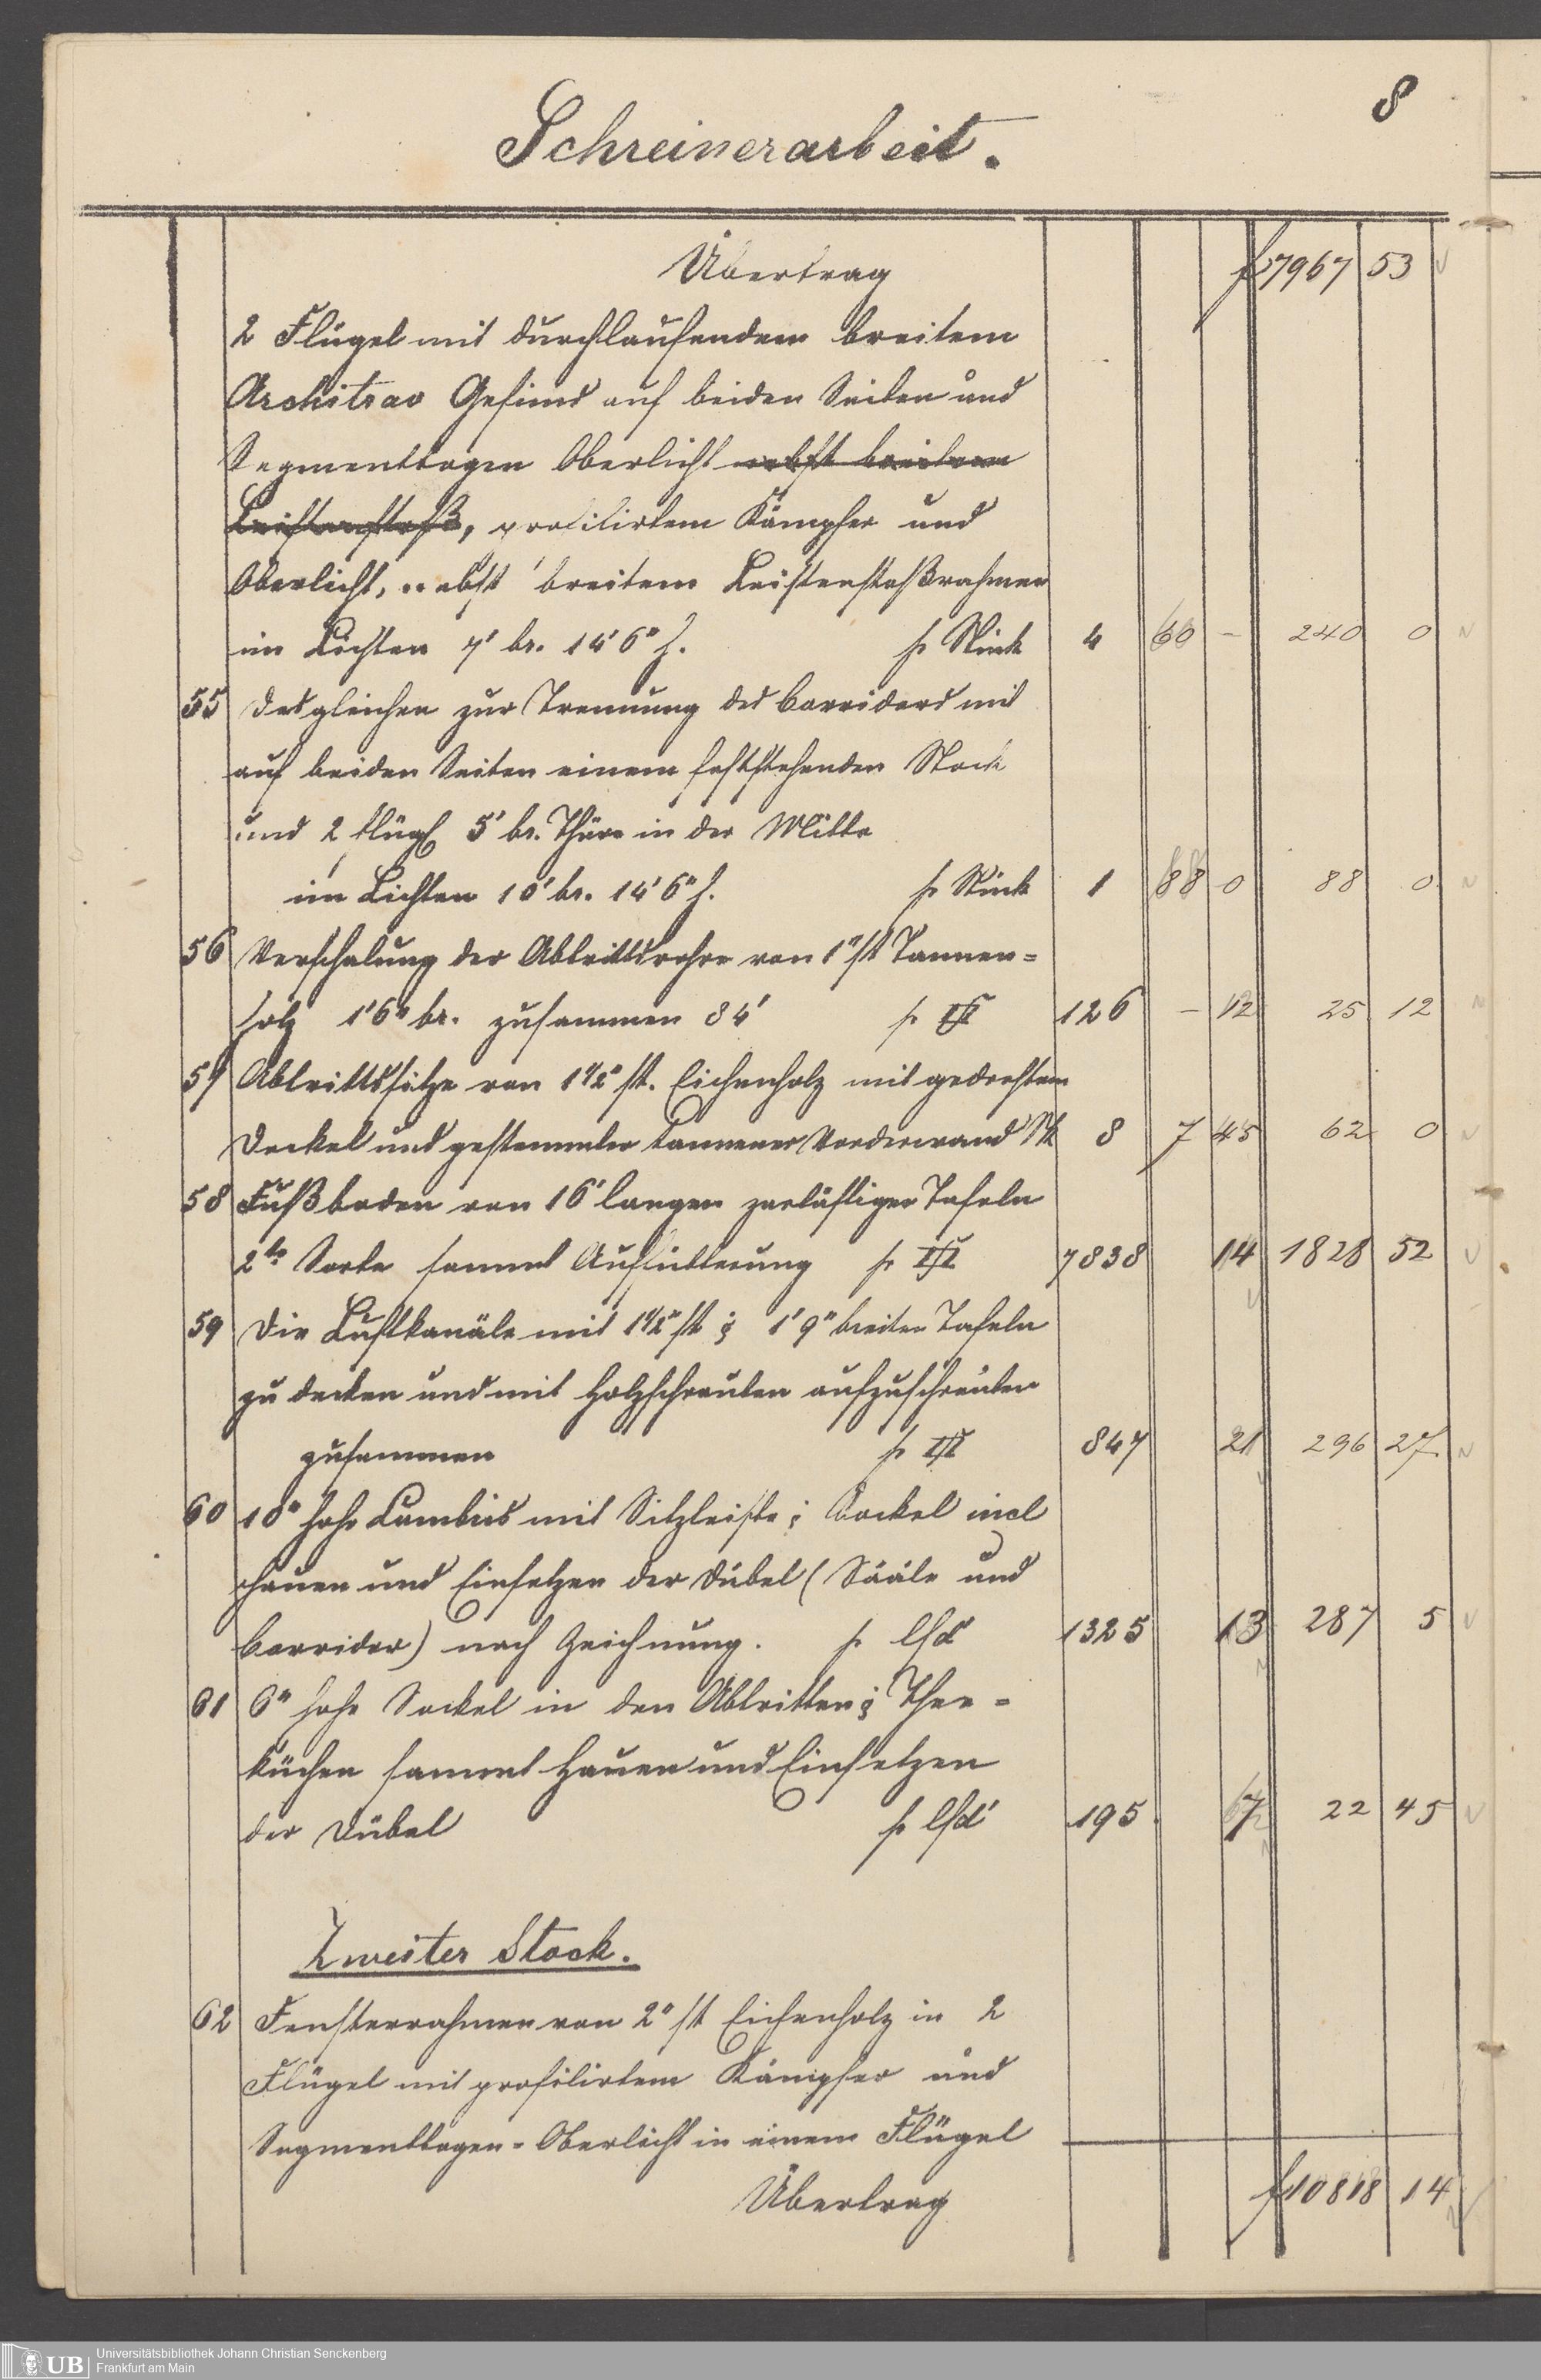 8
Schreinerarbeit.
Übertrag f 7967 53
2 Flügel mit durchlaufendem breitem
Architrav Gesims auf beiden Seiten und
Segmentbogen Oberlicht nebst breitem
Leistenstoß, profilirtem Kämpfer und
Oberlicht, nebst breitem Leistenstoßrahmen
im Lichten 7' br. 14'6" h. pr Stück 4 60 – 240 0
55 Desgleichen zur Trennung des Corridors mit
auf beiden Seiten einem feststehenden Stück
und 2 flügl 5' br. Thüre in der Mitte
im Lichten 10' br. 14'6" h. pr Stück 1 88 0 88 0
56 Verschalung der Abtrittsrohre von 1" st Tannen=
holz 1'6" br. zusammen 84' pr 126 – 12 25 12
57 Abtrittssitze von 1 1/2" st. Eichenholz mit gedrehtem
Deckel und gestemmter tannener Vorderwand St 8 7 45 62 0
58 Fußboden von 16' langen Tafeln
2te Sorte sammt Auffütterung pr 7838 14 1828 52
59 Die Luftkanäle mit 1 1/2" st 1'9" breiten Tafeln
zu decken und mit Holzschrauben aufzuschrauben
zusammen pr 847 21 296 27
60 10" hohe Lambris mit Sitzleiste; Sockel incl
Hauen und Einsetzen der Dübel (Sääle und
Corridor) nach Zeichnung. pr lfd' 1325 13 287 5
61 6" hohe Sockel in den Abtritten; Thee=
küchen sammt Hauen und Einsetzen
der Dübel pr lfd' 195 7 22 45
Zweiter Stock.
62 Fensterrahmen von 2" st Eichenholz in 2
Flügel mit profilirtem Kämpfer und
Segmentbogen-Oberlicht in einem Flügel
Übertrag f 10818 14
UB Universitätsbibliothek Johann Christian Senckenberg
Frankfurt am Main